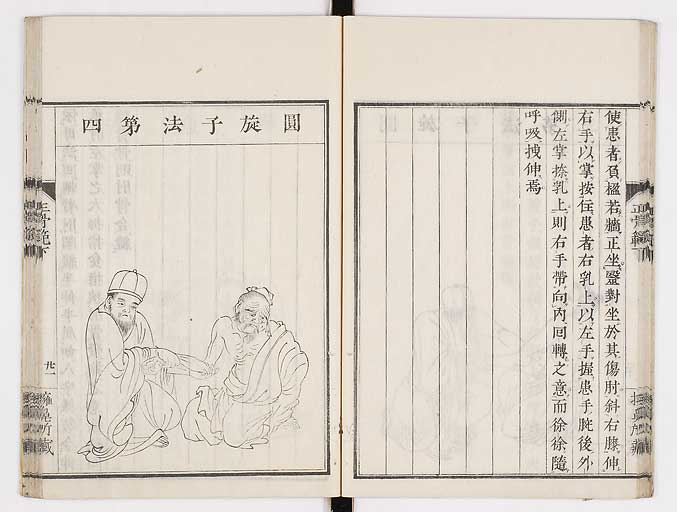 使患者負楹若牆正坐、毉對坐於其傷肘斜右膝伸
右手以掌按住患者右乳上、以左手握患手腕後外
側左掌捺乳上則右手帶向內回轉之意而徐徐隨
呼吸拽伸焉
圓旋子法第四
正骨範下
廿一